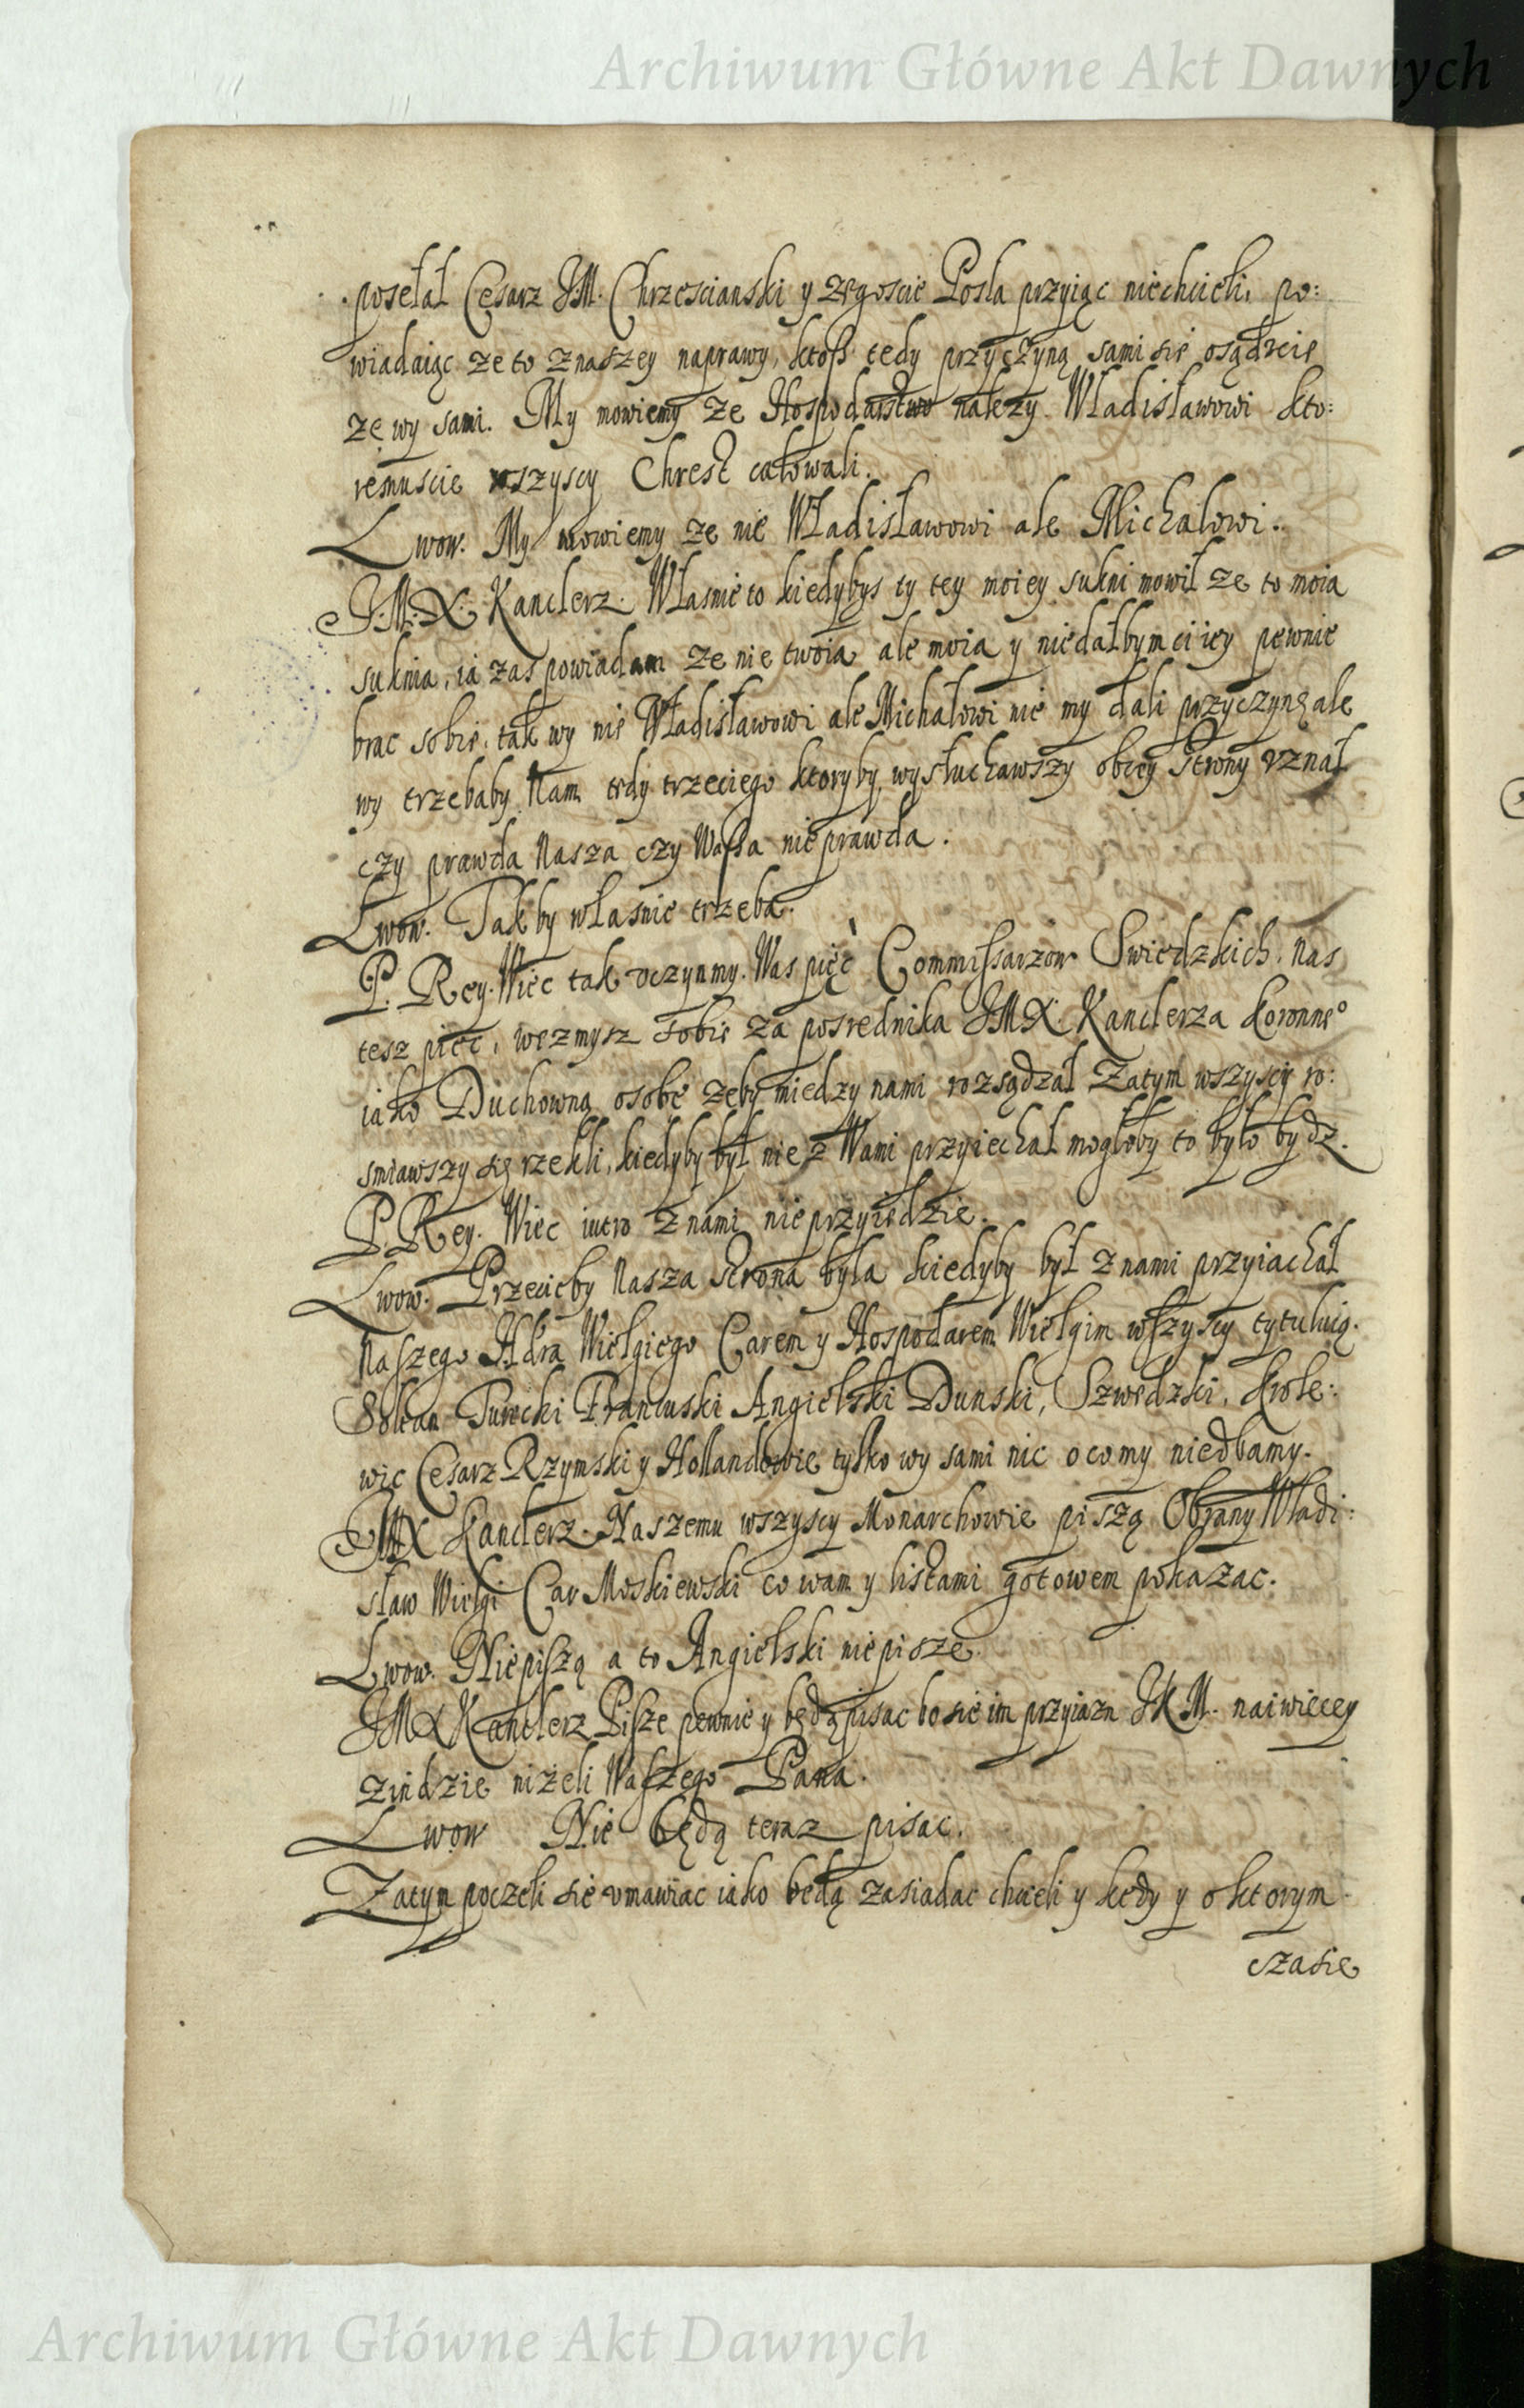 Archiwum Główne Akt Dawnych
posełał Cesarz JM. Chrzescianski y zegoscie Posła przyiąc niechcieli, po:
wiadaiąc ze to z naszey naprawy, ktoß tedy przyczyną sami sie osądzcie
ze wy sami. My mowiemy ze Hospodarstwo nalezy Władisławowi kto:
remuscie wszyscy Chrest całowali.
Lwow. My mowiemy ze nie Władisławowi ale Michałowi.
J.M.X. Kanclerz. Własnie to kiedybys ty tey moiey sukni mowił ze to moia
suknia, ia zas powiadam ze nie twoia ale moia y niedałbym ci iey pewnie
brac sobie, tak wy nie Władisławowi ale Michałowi nie my dali przyczynę ale
wy trzebaby Nam tedy trzeciego ktoryby wysłuchawszy obcey strony vznał
czy prawda Nasza czy Waßa nieprawda.
Lwow. Tak by własnie trzeba.
P. Rey. Wiec tak vczynmy. Was pięć Commissarzow Swiedzkich. Nas
tesz pięc, wezmysz sobie za posrednika JMX. Kanclerza Koronne°
iako Duchowną osobę zeby miedzy nami rozsądzał Zatym wszyscy ro:
smiawszy się rzekli, kiedyby był nie z Wami przyiechał mogłoby to było bydz.
P. Rey. Wiec iutro z nami nieprzyiedzie.
Lwow. Przecieby Nasza strona była kiedyby był z nami przyiachał
Naszego Hdra Wielgiego Carem y Hospodarem Wielgim wszyscy tytułuią.
Sołtan Turecki Francuski Angielski Dunski, Szwedzki, Krole:
wic Cesarz Rzymski y Hollandowie tylko wy sami nic o co my niedbamy.
JMX Kanclerz. Naszemu wszyscy Monarchowie piszą Obrany Władi:
sław Wielgi Car Moskiewski co wam y listami gotowem pokazac.
Lwow. Niepiszą a to Angielski niepisze.
JMX Kanclerz Pisze pewnie y będą pisac bo sie im przyiazn JKM. naiwiecey
zindzie nizeli Waszego Pana.
Lwow Nie będą teraz pisac.
Zatym poczeli sie vmawiac iako będą zasiadac chcieli y kędy y o ktorym
czasie
Archiwum Główne Akt Dawnych